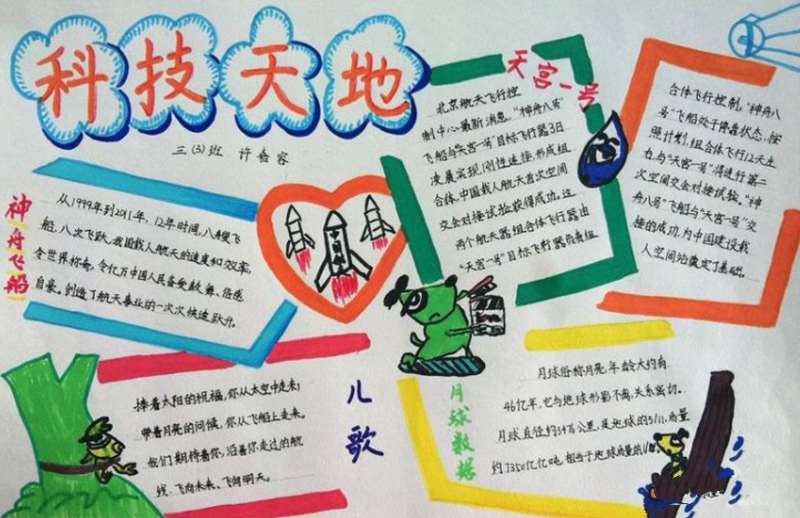 科技天地
三(3)班 许嘉容
神舟飞船
从1999年到2011年，12年时间，八艘飞
船，八次飞跃，我国载人航天的速度和效率，
令世界称奇，令亿万中国人民备受鼓舞、倍感
自豪。创造了航天事业的一次次快速跃升。
天宫一号
北京航天飞行控
制中心最新消息，“神舟八号”
飞船与“天宫一号”目标飞行器3日
凌晨实现刚性连接，形成组
合体，中国载人航天首次空间
交会对接试验获得成功。这
两个航天器组合体飞行器由
“天宫一号”目标飞行器负责组
合体飞行控制，“神舟八
号”飞船处于停靠状态，按
照计划，组合体飞行12天左
右与“天宫一号”将进行第二
次空间交会对接试验。“神
舟八号”飞船与“天宫一号”交
接的成功，为中国建设载
人空间站奠定了基础。
儿歌
捧着太阳的祝福，你从太空中走来；
带着月亮的问候，你从飞船上走来。
我们期待着你，沿着你走过的航
线，飞向未来、飞向明天。
月球数据
月球俗称月亮，年龄大约有
46亿年，它与地球形影不离，关系密切。
月球直径约3476公里，是地球的3/11，质量
约7350亿亿吨，相当于地球质量的1/8